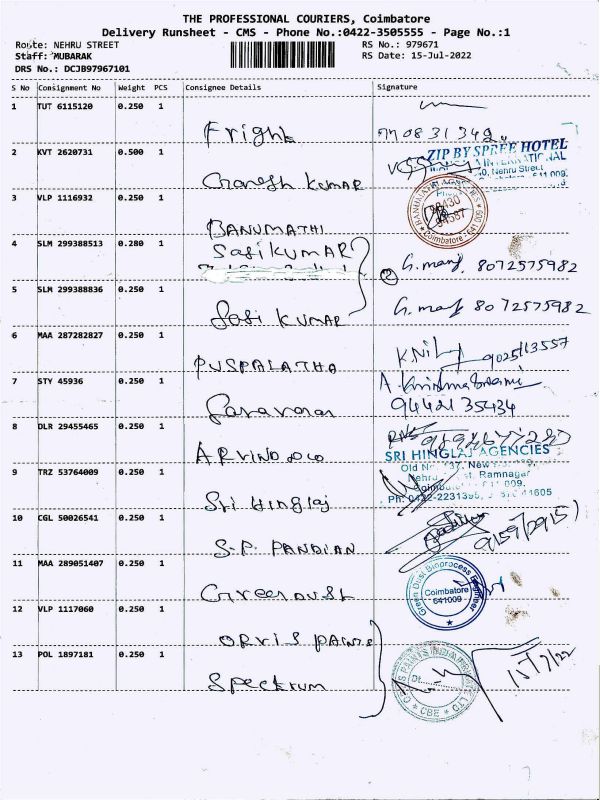 THE PROFESSIONAL COURIERS, Coimbatore
Delivery Runsheet - CMS - Phone No.:0422-3505555 - Page No.:1
Route: NEHRU STREET
RS No.: 979671
Staff: MUBARAK
RS Date: 15-Jul-2022
DRS No.: DCJB97967101
S No Consignment No Weight PCS Consignee Details Signature
1 TUT 6115120 0.250 1
Fright
2 KVT 2620731 0.500 1
ZIP BY SPREE HOTEL
Nehru Street
Ganesh Kumar
3 VLP 1116932 0.250 1
BANUMATHI
Coimbatore
4 SLM 299388513 0.280 1
Sasikumar
G. 8072575982
5 SLM 299388836 0.250 1
Sasi Kumar
G. 8072575982
6 MAA 287282827 0.250 1
PUSPALATHA
9025113557
7 STY 45936 0.250 1
Saravanan
9442135434
8 DLR 29455465 0.250 1
ARVIND
SRI HINGLAJ AGENCIES
9 TRZ 53764009 0.250 1
Ramnagar
Sri Hinglaj
10 CGL 50026541 0.250 1
S.P. PANDIAN
11 MAA 289051407 0.250 1
Green Dust
Green Dust Bioprocess Engineer
Coimbatore
641009
12 VLP 1117060 0.250 1
ORVIS PAINTS
13 POL 1897181 0.250 1
Spectrum
15/7/22
CBE